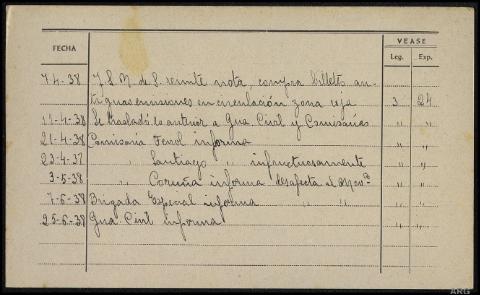 FECHA VÉASE
Leg. Exp.
7-4-38 J. S. M. de S. remite nota, compra billetes an-
tiguas emisiones en circulación zona roja 3 24
11-4-38 Se trasladó lo anterior a Gua Civil y Comisarías " "
21-4-38 Comisaría Ferol informa " "
23-4-37 " Santiago " infructuosamente " "
3-5-38 " Coruña informa desafecta al Movº " "
7-6-38 Brigada Especial informa " " " "
25-6-38 Gua Civil informa " "
ARG